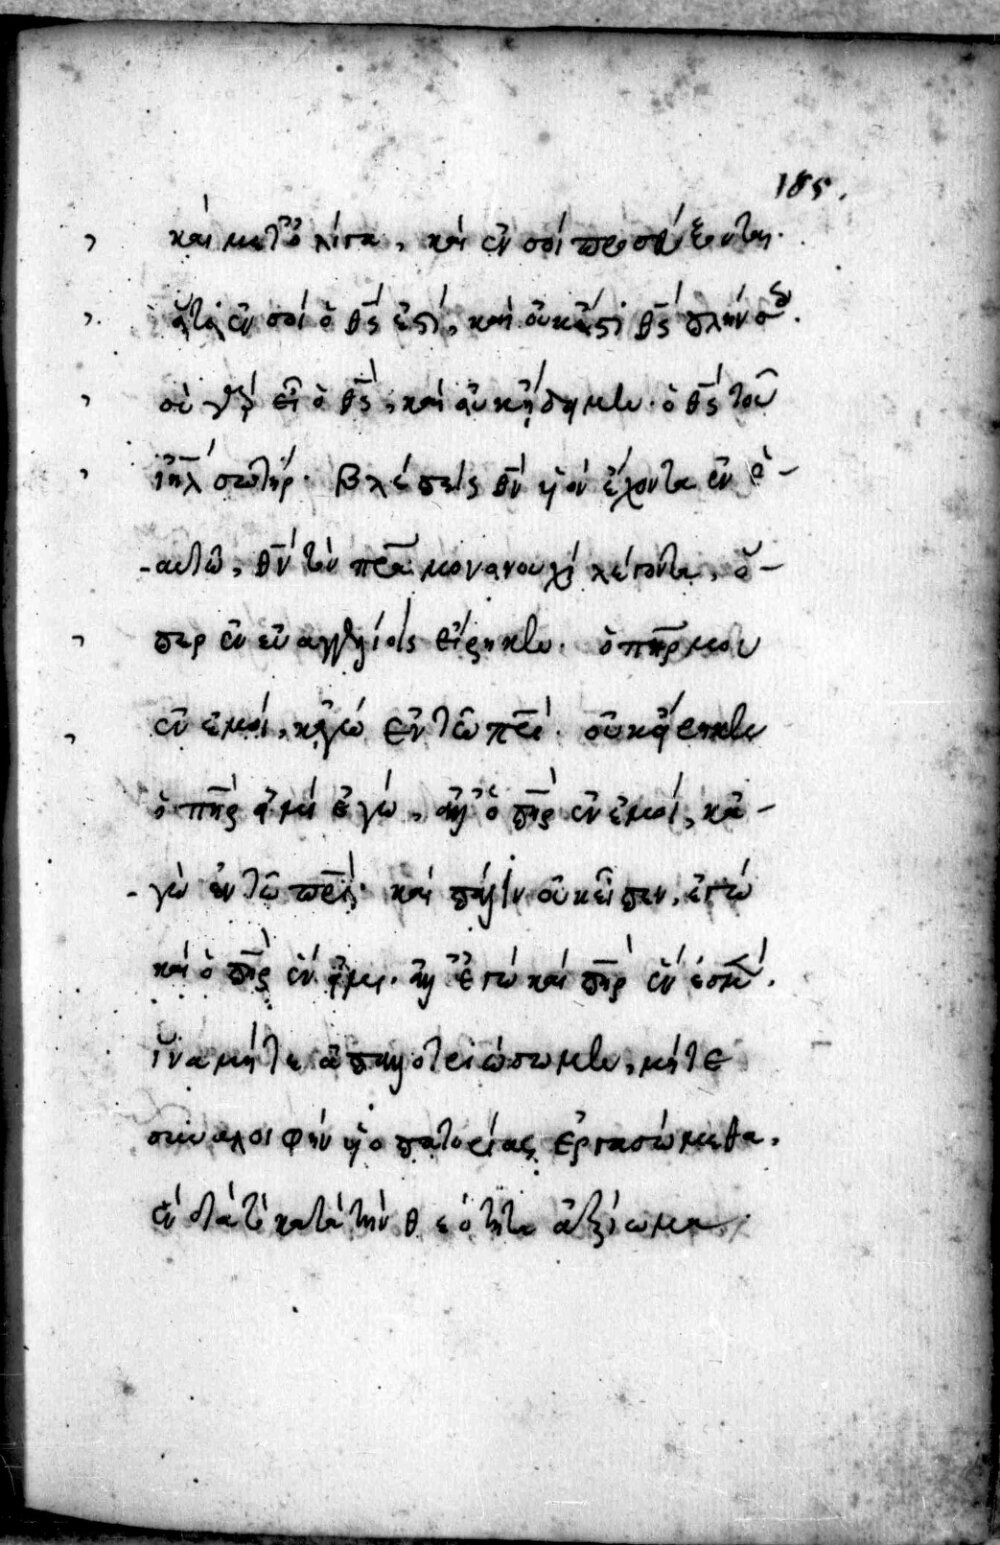 185.
καὶ μετ' ὀλίγα, καὶ ἐν σοὶ προσεύξονται.
ὅτι ἐν σοὶ ὁ θς ἐστί, καὶ οὐκ ἔστι θς πλὴν σοῦ.
σὺ γὰρ εἶ ὁ θς, καὶ οὐκ ᾔδημεν. ὁ θς τοῦ
ιηλ σωτήρ. βλέπεις θν υἱὸν ἔχοντα ἐν ἑ-
-αυτῷ, θν τὸν πρα μονονουχὶ λέγοντα, ὅ
περ ἐν εὐαγγελίοις εἴρηκεν. ὁ πηρ μου
ἐν ἐμοί, κἀγώ ἐν τῷ πρι. οὐκ εἴρηκεν
ὁ πηρ εἰμὶ ἐγώ, ἀλλ' ὁ πηρ ἐν ἐμοί, κἀ-
-γὼ ἐν τῷ πρι. καὶ πάλιν οὐκ εἶπεν, ἐγώ
καὶ ὁ πηρ ἕν εἰμι. ἀλλ' ἐγώ καὶ πηρ ἕν ἐσμεν.
ἵνα μήτε ἀπαλλοτριώσωμεν, μήτε
συναλοιφὴν υἱοπατορίας ἐργασώμεθα.
ἓν ὄν τὸ κατὰ τὴν θεότητα ἀξίωμα